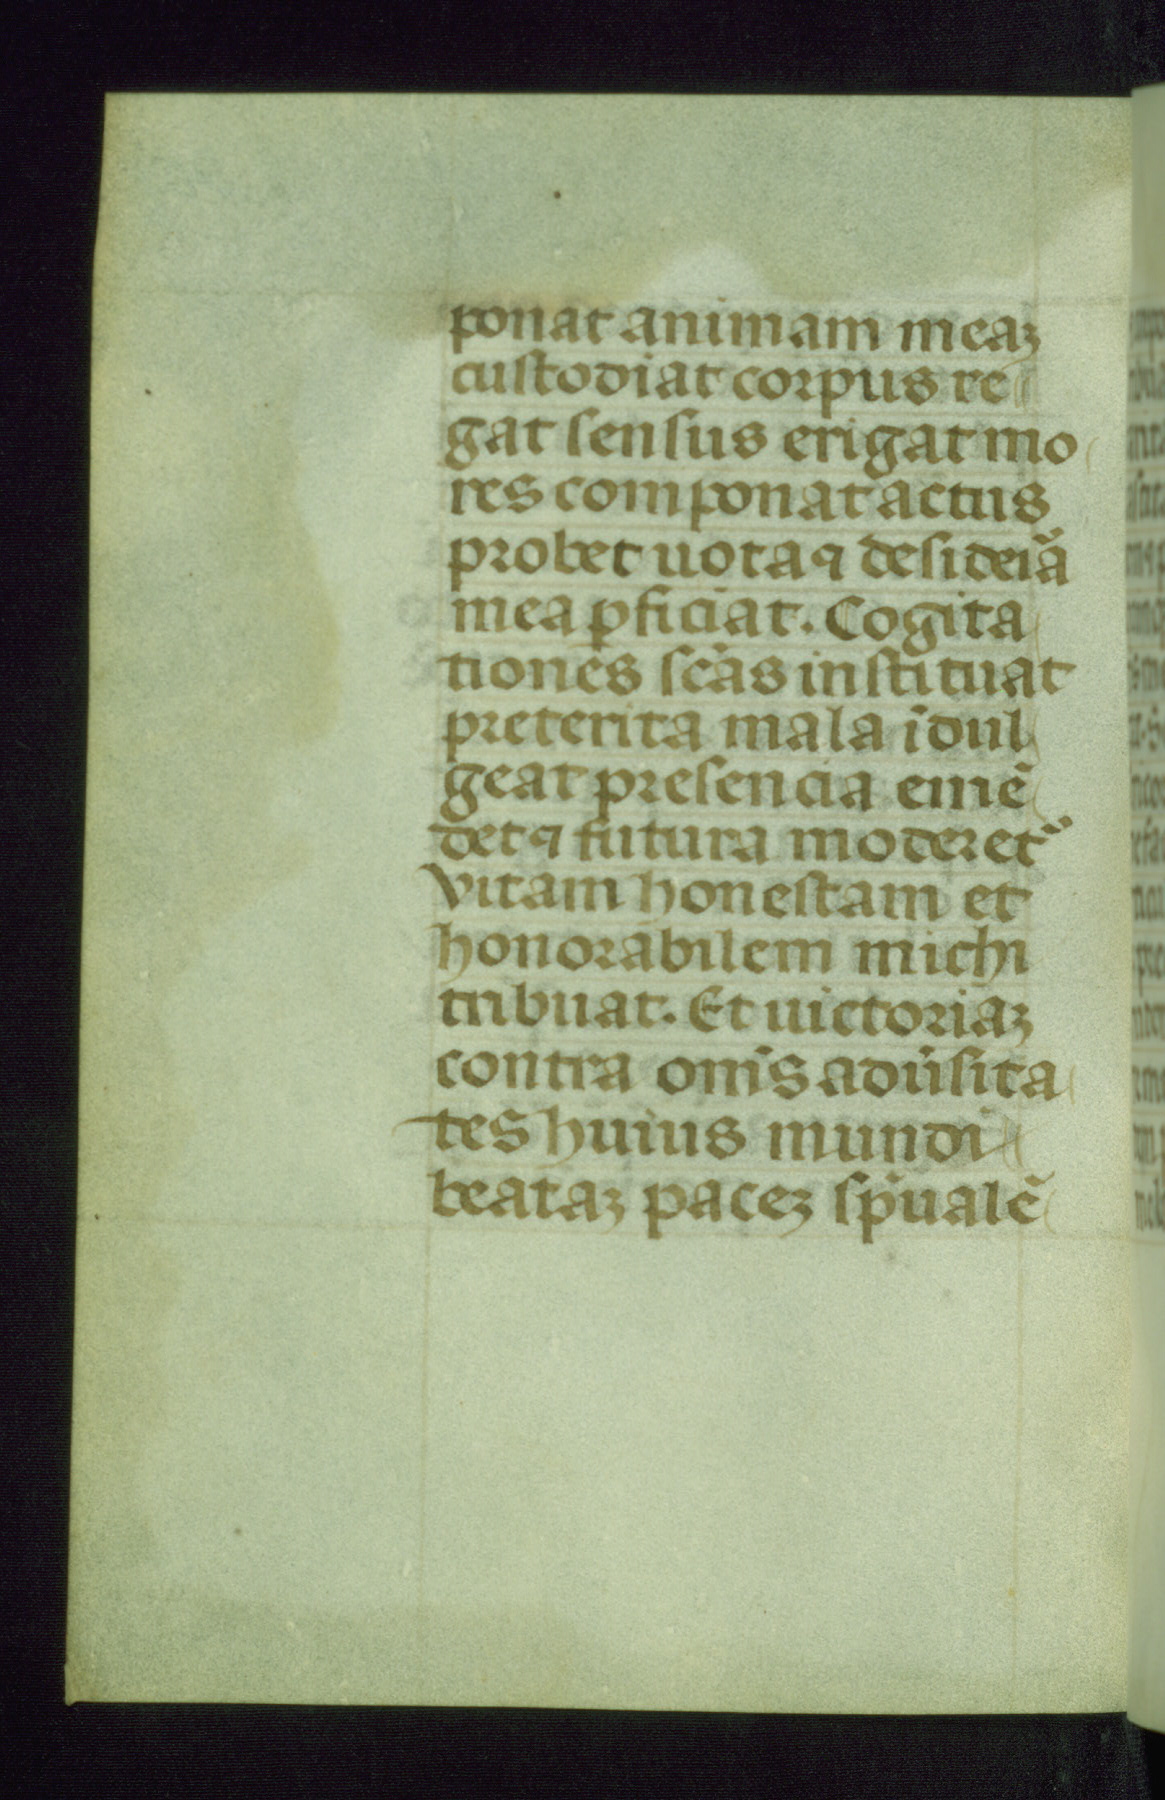 ponat animam meaꝫ
custodiat corpus re
gat sensus erigat mo
res componat actus
probet uota ⁊ desideiã
mea ꝑficiat. Cogita
tiones scãs instituat
preterita mala ĩdul
geat presencia emẽ
det ⁊ futura moderet
vitam honestam et
honorabilem michi
tribuat. Et uictoriaꝫ
contra om̃s adũsita
tes huius mundi
beataꝫ paceꝫ sp̃ualẽ